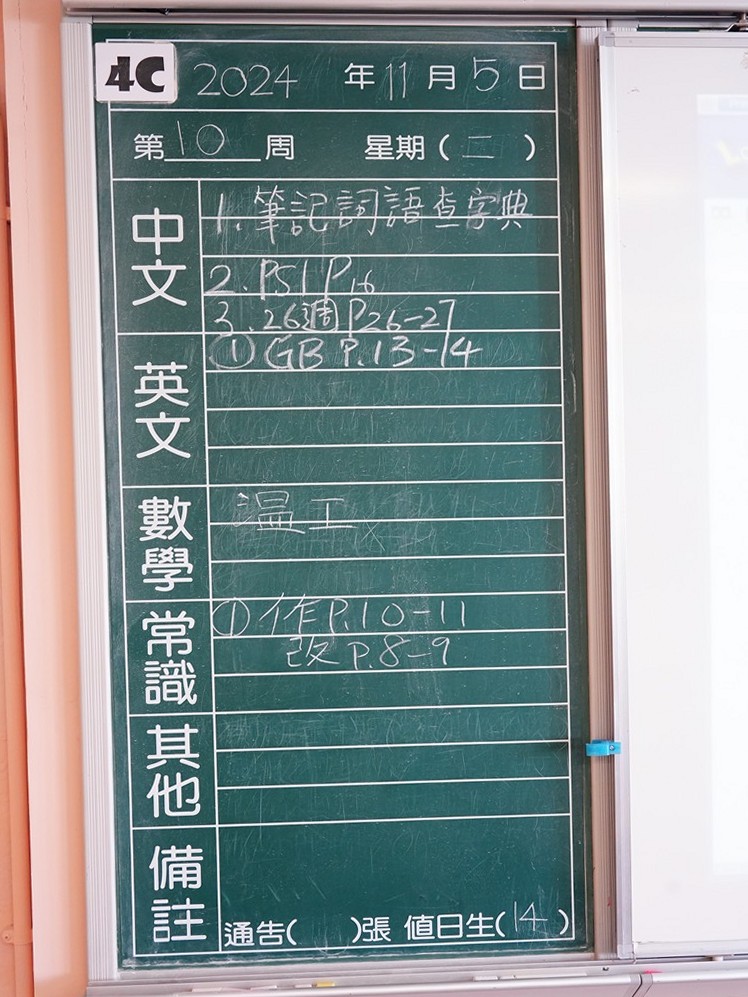 4C 2024 年 11 月 5 日
第 10 周 星期( 二 )
中文
1. 筆記詞語查字典
2. PS1 P16
3. 26週 P26-27
英文
① GB P.13-14
數學
溫工
常識
① 作 P.10-11
改 P.8-9
其他
備註
通告( )張 值日生(14)